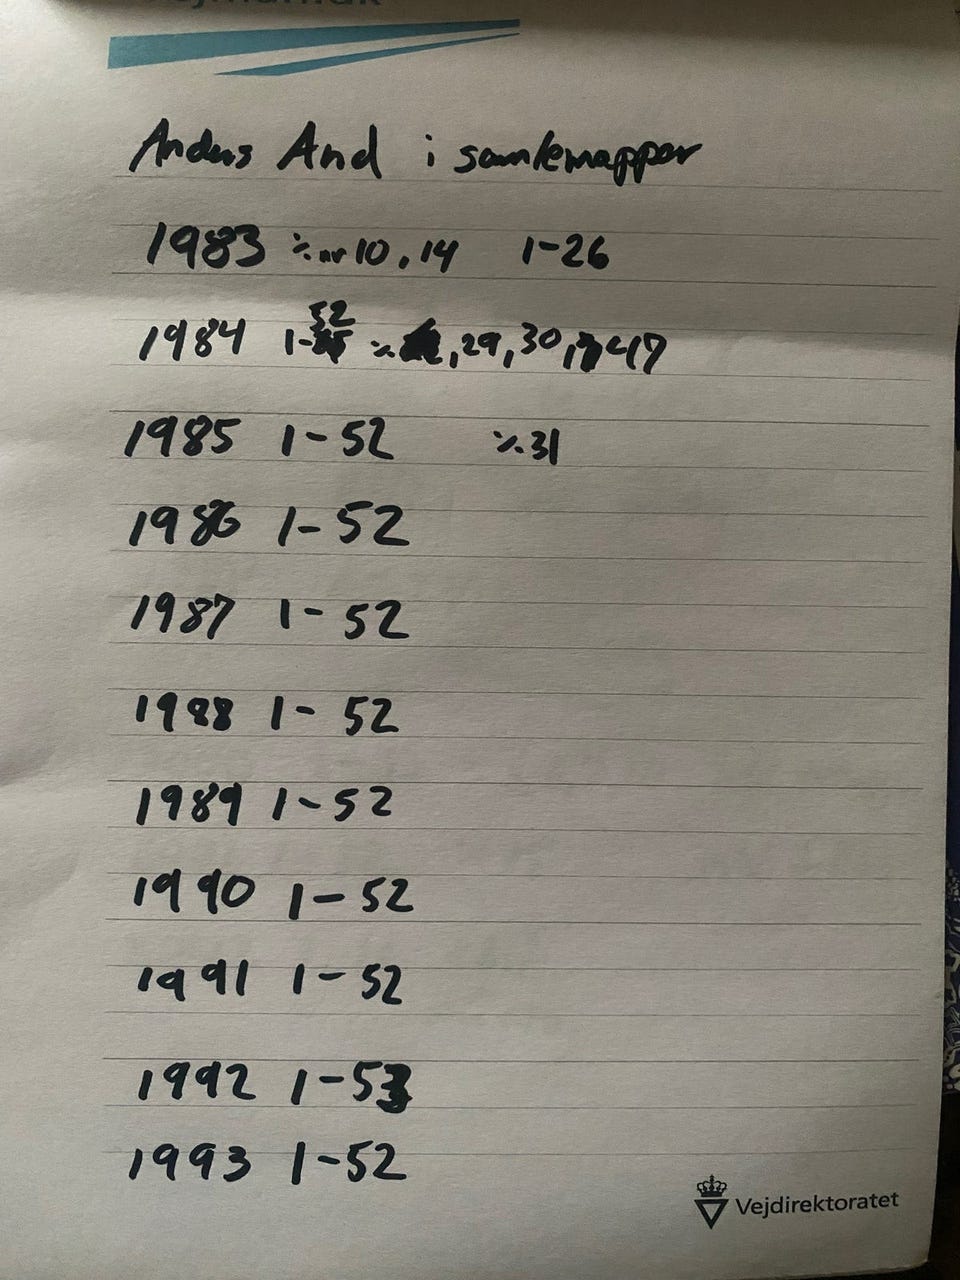 Anders And i samlemapper
1983 ٪ nr 10, 14 1-26
1984 1-52 ٪ , 29, 30, 47
1985 1-52 ٪ 31
1986 1-52
1987 1-52
1988 1-52
1989 1-52
1990 1-52
1991 1-52
1992 1-53
1993 1-52
Vejdirektoratet